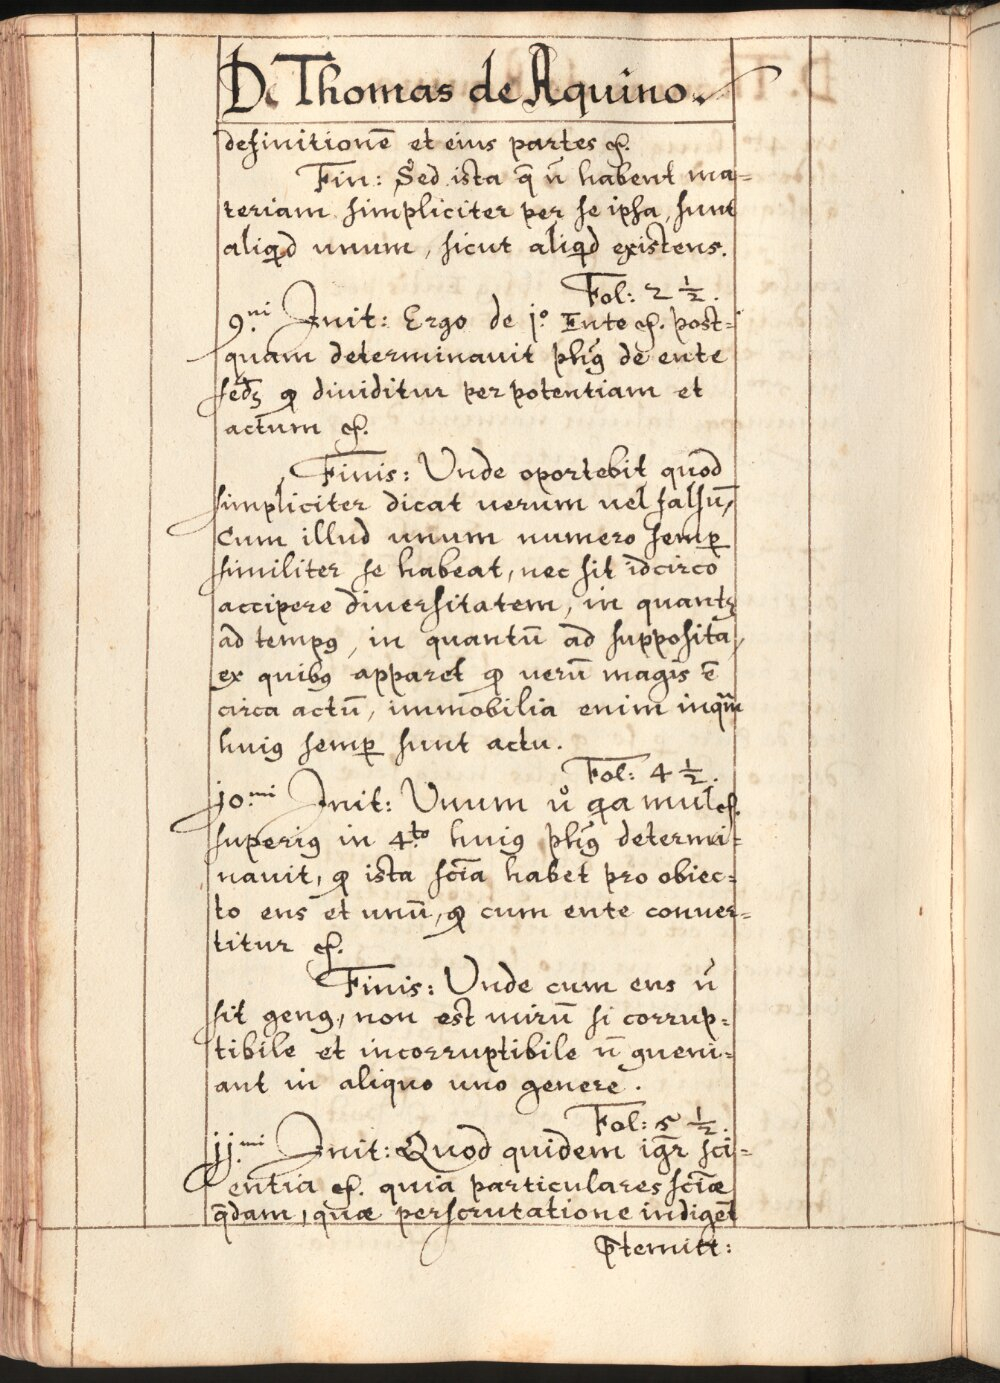 D. Thomas de Aquino.
definitionē et eius partes &.
Fin: Sed ista q̄ n̄ habent ma=
teriam simpliciter per se ipsa, sunt
aliqd unum, sicut aliqd existens.
Fol: 2 ½.
9.ni Init: Ergo de j.o Ente &. post=
quam determinauit phūs de ente
sedz qd diuiditur per potentiam et
actum &.
Finis: Unde oportebit quod
simpliciter dicat uerum uel falsū,
Cum illud unum numero semp
similiter se habeat, nec sit idcirco
accipere diuersitatem, in quantū
ad tempus, in quantū ad supposita,
ex quibus apparet qd uerū magis ē
circa actū, immobilia enim inqm̄
huius semp sunt actu.
Fol: 4 ½.
jo.mi Init: Unum u° qa mul &.
superius in 4.to huius phūs determi=
nauit, qd ista scīa habet pro obiec=
to ens et unū, qd cum ente conuer=
titur &.
Finis: Unde cum ens n̄
sit genus, non est mirū si corrup=
tibile et incorruptibile n̄ 9ueni=
ant in aliquo uno genere.
Fol: 5 ½.
jj.mi Init: Quod quidem igr̄ sci=
entia &. quia particulares scīæ
q̄dam, quæ perscrutatione indigēt
p̄termitt: